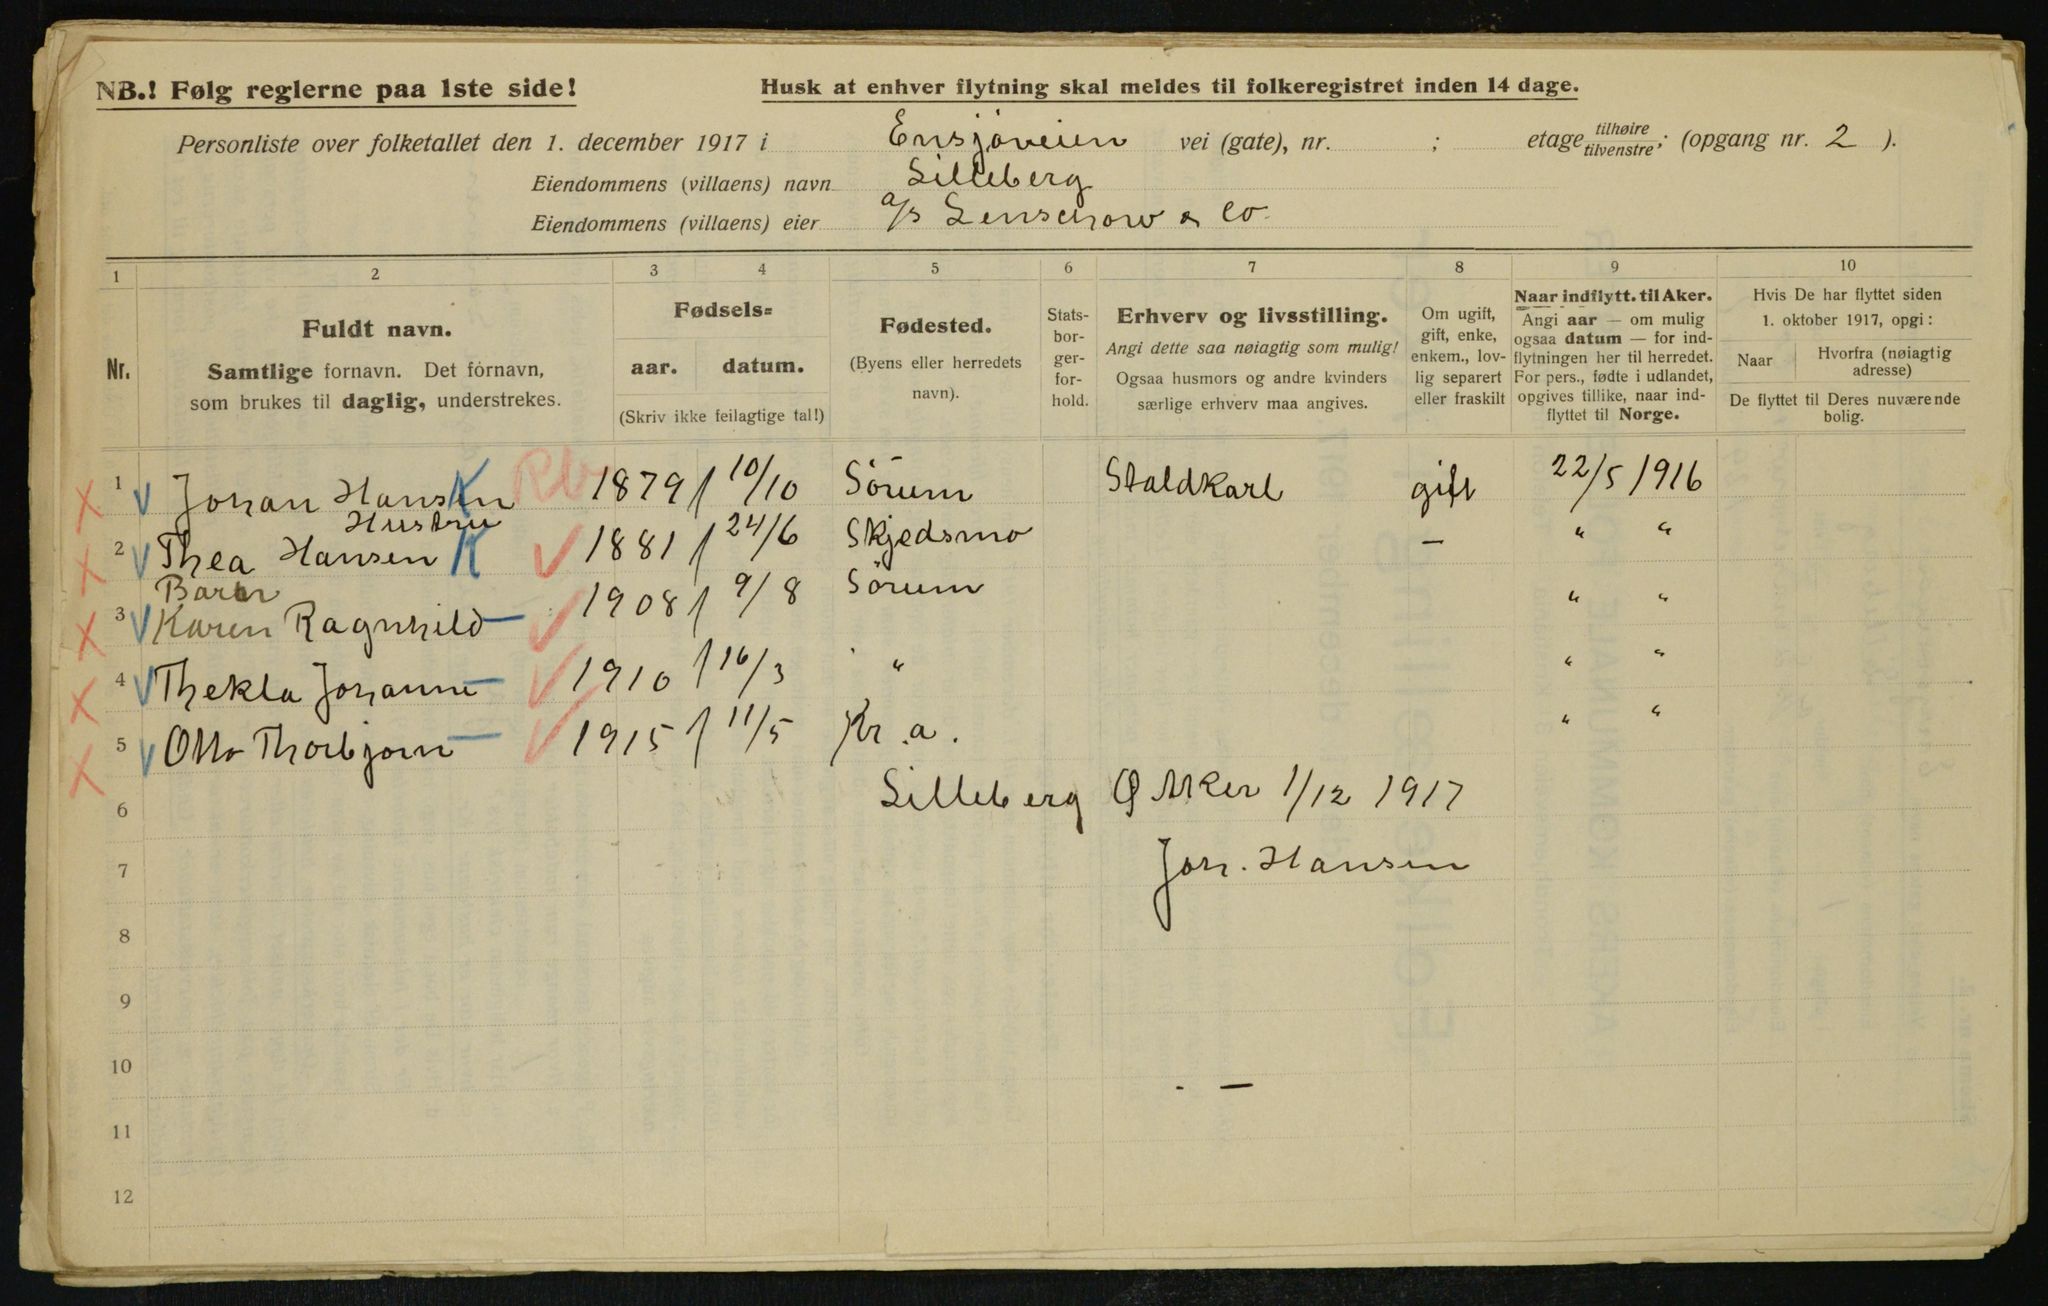 NB.! Følg reglerne paa 1ste side!
Husk at enhver flytning skal meldes til folkeregistret inden 14 dage.
Personliste over folketallet den 1. december 1917 i Ensjøveien vei (gate), nr. ; etage tilhøire tilvenstre; (opgang nr. 2 ).
Eiendommens (villaens) navn Lilleberg
Eiendommens (villaens) eier a/s Lenschow & Co.
1 2 3 4 5 6 7 8 9 10
Nr.
Fuldt navn.
Samtlige fornavn. Det fornavn,
som brukes til daglig, understrekes.
Fødsels=
aar. datum.
(Skriv ikke feilagtige tal!)
Fødested.
(Byens eller herredets
navn).
Stats-
bor-
ger-
for-
hold.
Erhverv og livsstilling.
Angi dette saa nøiagtig som mulig!
Ogsaa husmors og andre kvinders
særlige erhverv maa angives.
Om ugift,
gift, enke,
enkem., lov-
lig separert
eller fraskilt
Naar indflytt. til Aker.
Angi aar — om mulig
ogsaa datum — for ind-
flytningen her til herredet.
For pers., fødte i udlandet,
opgives tillike, naar ind-
flyttet til Norge.
Hvis De har flyttet siden
1. oktober 1917, opgi:
Naar Hvorfra (nøiagtig
adresse)
De flyttet til Deres nuværende
bolig.
1 Johan Hansen K Rb 1879 10/10 Sørum Staldkarl gift 22/5 1916
Hustru
2 Thea Hansen K 1881 24/6 Skjedsmo — " "
Barn
3 Karen Ragnhild 1908 9/8 Sørum " "
4 Thekla Johanne 1910 16/3 " " "
5 Otto Thorbjørn 1915 11/5 Kr.a. " "
6 Lilleberg Ø Aker 1/12 1917
7 Joh. Hansen
8
9
10
11
12